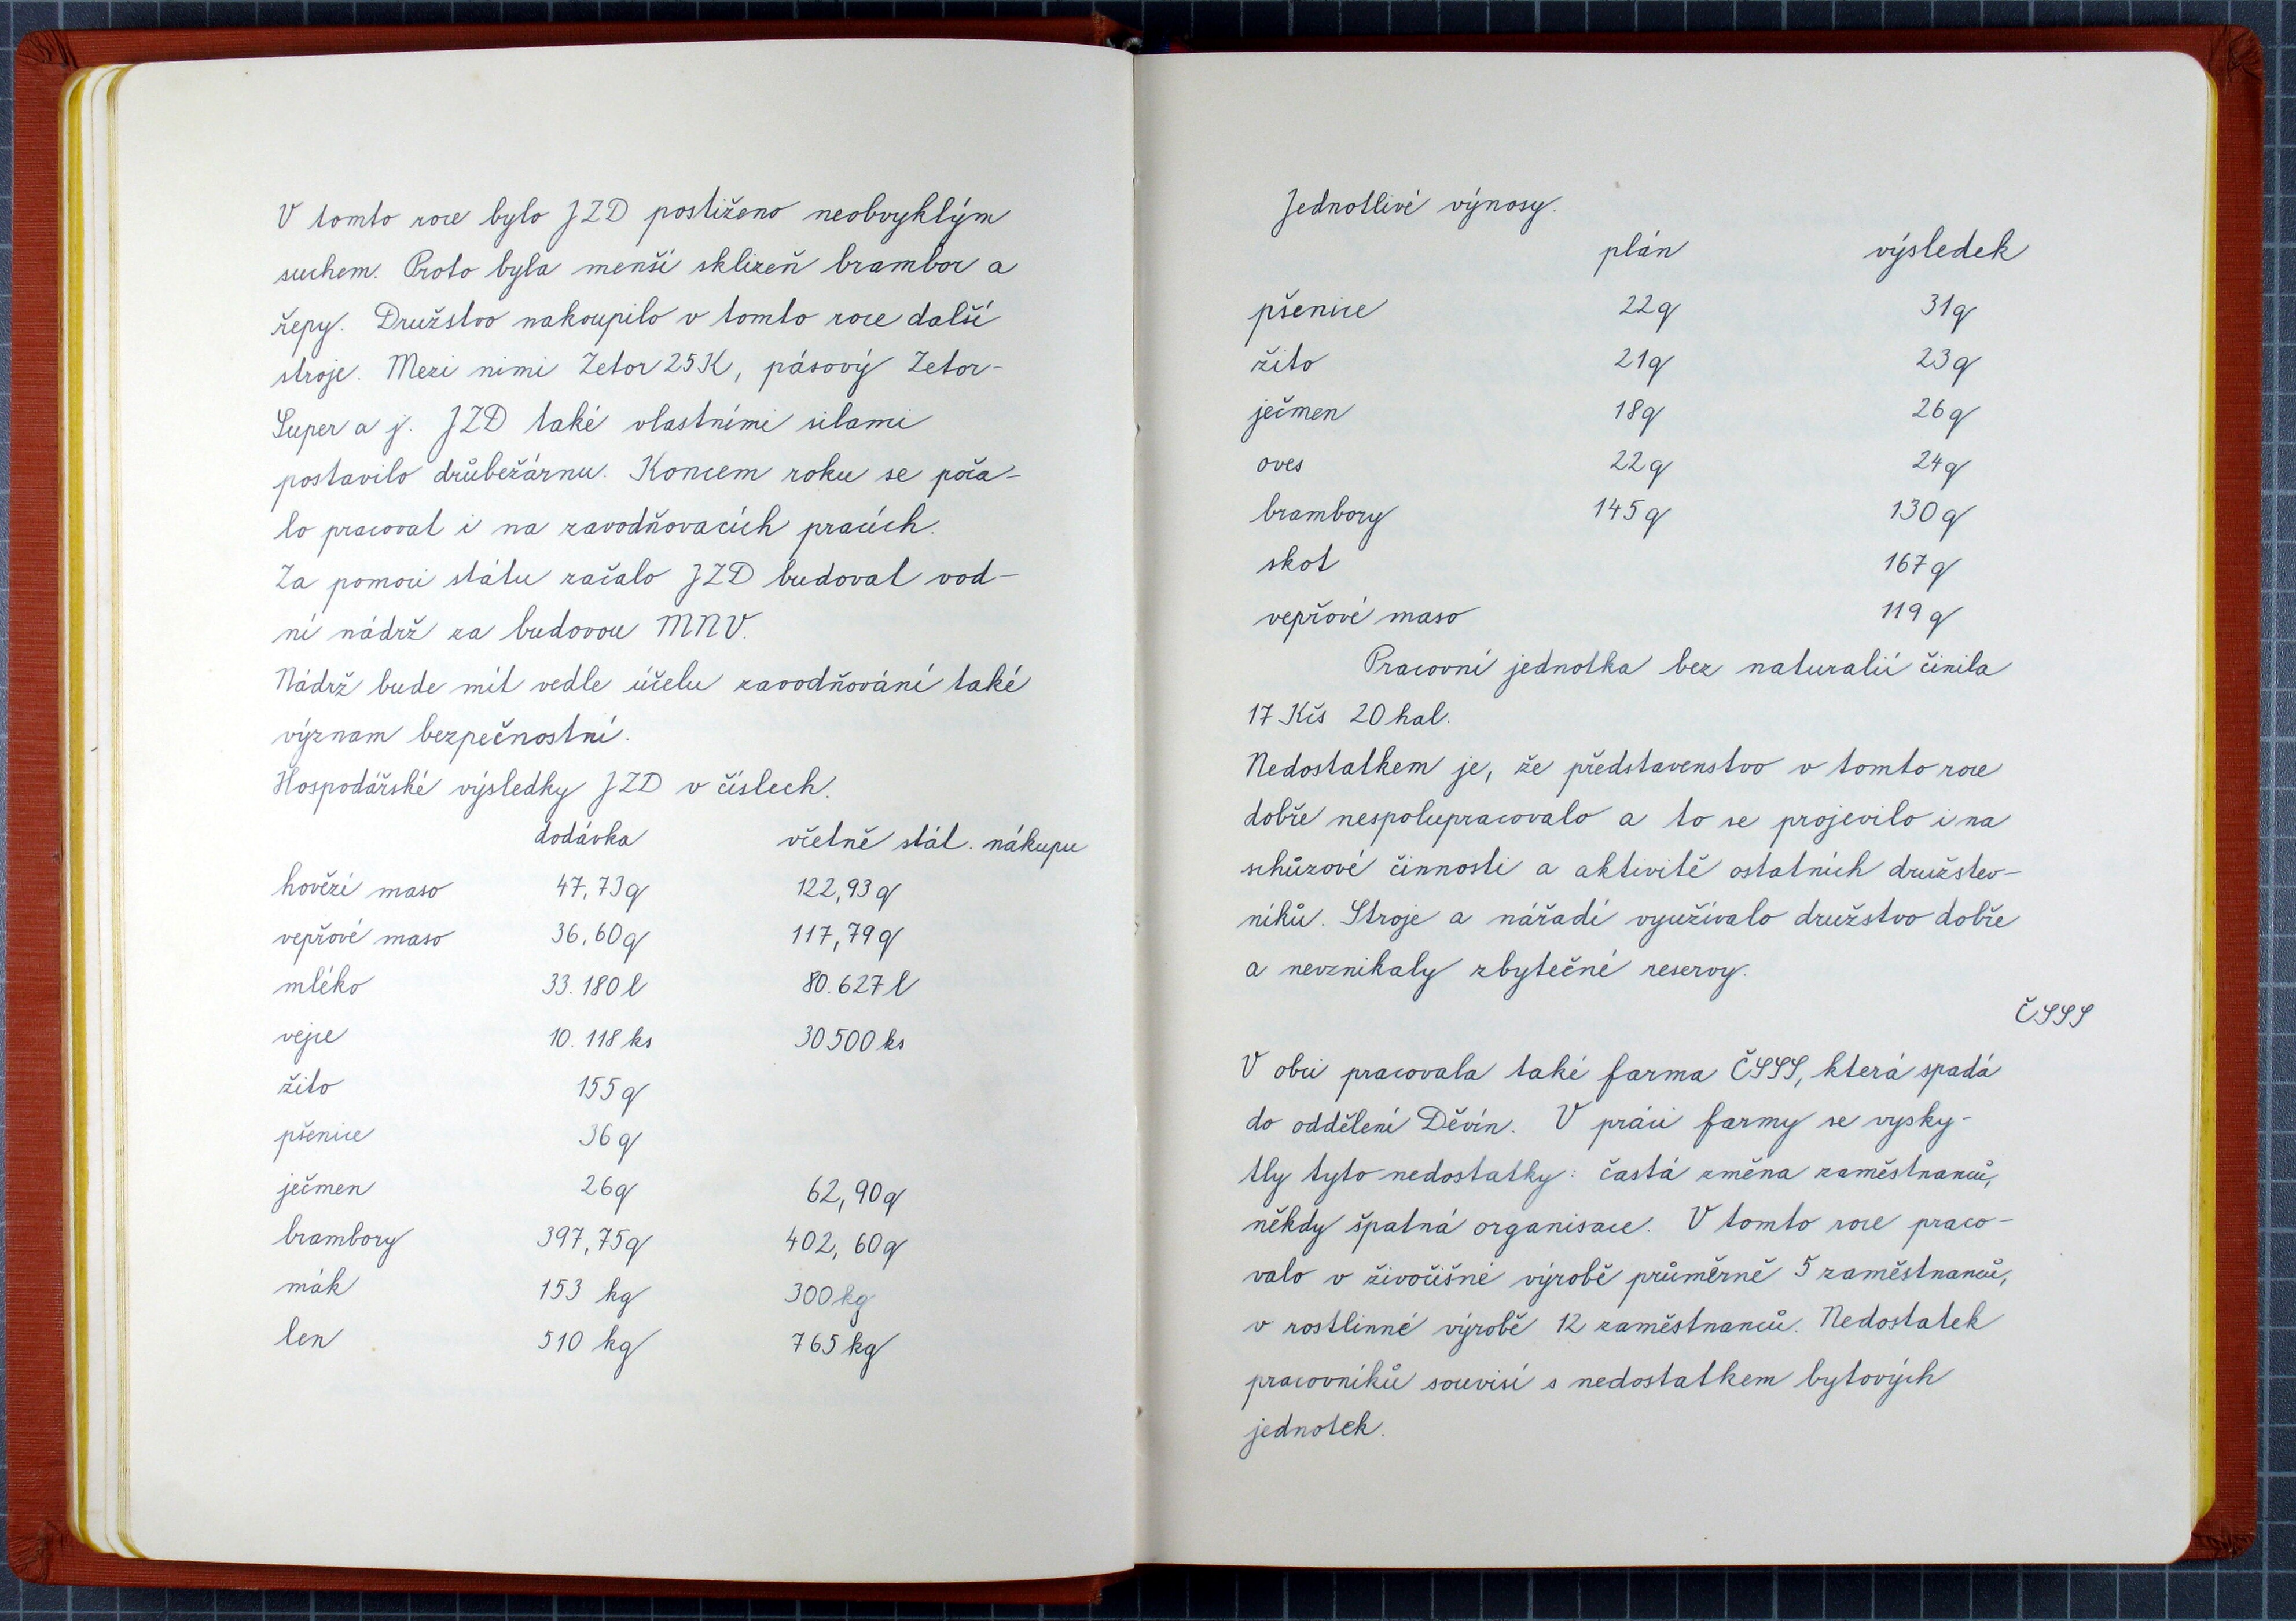 V tomto roce bylo JZD postiženo neobvyklým
suchem. Proto byla menší sklizeň brambor a
řepy. Družstvo nakoupilo v tomto roce další
stroje. Mezi nimi Zetor 25K, pásový Zetor-
Super a j. JZD také vlastními silami
postavilo drůbežárnu. Koncem roku se poča-
lo pracovat i na zavodňovacích pracích.
Za pomoci státu začalo JZD budovat vod-
ní nádrž za budovou MNV.
Nádrž bude mít vedle účelu zavodňování také
význam bezpečnostní.
Hospodářské výsledky JZD v číslech.
dodávka včetně stát. nákupu
hovězí maso 47,73q 122,93q
vepřové maso 36,60q 117,79q
mléko 33.180 l 80.627 l
vejce 10.118 ks 30500 ks
žito 155q
pšenice 36q
ječmen 26q 62,90q
brambory 397,75q 402,60q
mák 153 kg 300 kg
len 510 kg 765 kg
Jednotlivé výnosy.
plán výsledek
pšenice 22q 31q
žito 21q 23q
ječmen 18q 26q
oves 22q 24q
brambory 145q 130q
skot 167q
vepřové maso 119q
Pracovní jednotka bez naturalií činila
17 Kčs 20 hal.
Nedostatkem je, že představenstvo v tomto roce
dobře nespolupracovalo a to se projevilo i na
schůzové činnosti a aktivitě ostatních družstev-
níků. Stroje a nářadí využívalo družstvo dobře
a nevznikaly zbytečné reservy.
ČSSS
V obci pracovala také farma ČSSS, která spadá
do oddělení Děvín. V práci farmy se vysky-
tly tyto nedostatky: častá změna zaměstnanců,
někdy špatná organisace. V tomto roce praco-
valo v živočišné výrobě průměrně 5 zaměstnanců,
v rostlinné výrobě 12 zaměstnanců. Nedostatek
pracovníků souvisí s nedostatkem bytových
jednotek.